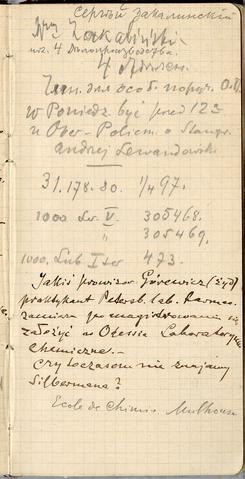 Сергѣй Закалинскій
Zakaliński
4 Дѣлопроизводства
w Poniedz. być przed 12ą
u Ober-Policm. o
Andrzej Lewandowski
31.178.80. 1/4 97.
1000 Lw. V. 305468.
" " 305469.
1000, Lub I 473.
Jakiś prowizor Górewicz (żyd)
praktykant Petersb. lab. Farmac.
zamierza po magistrowaniu się
założyć w Odessie Laboratoryum
Chemiczne.—
Czy toczasem nie znajomy
Silbermana?
Ecole de Chimie Mulhouse